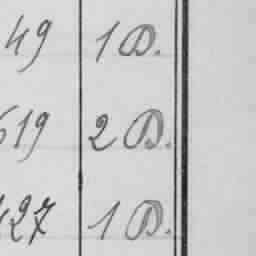 49 1 D.
619 2 D.
427 1 D.